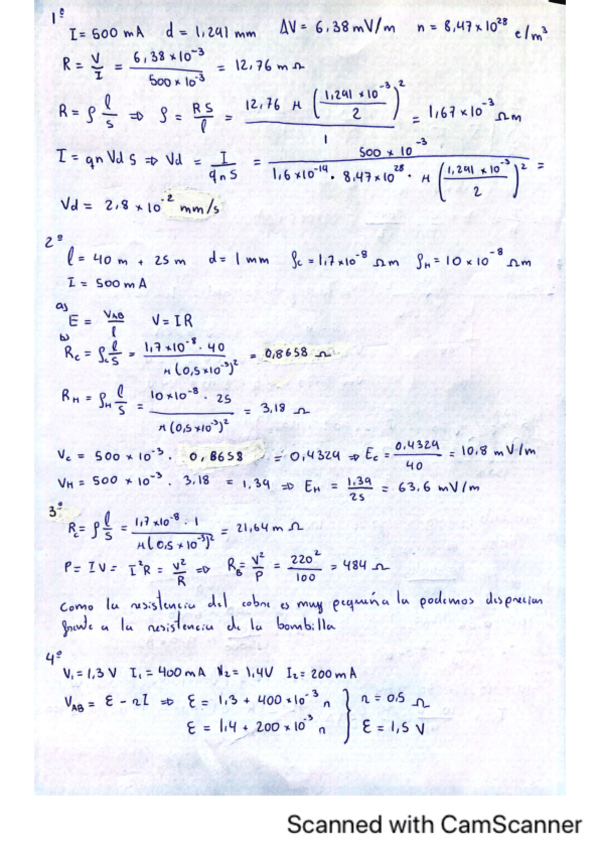 1º
I = 500 mA d = 1,291 mm ΔV = 6,38 mV/m n = 8,47 × 10^28 e/m³
R = V/I = 6,38 × 10^-3 / 500 × 10^-3 = 12,76 m Ω
R = ρ l/s ⇒ ρ = RS/l = 12,76 π (1,291 × 10^-3 / 2)² / 1 = 1,67 × 10^-3 Ωm
I = qn Vd S ⇒ Vd = I/qnS = 500 × 10^-3 / 1,6 × 10^-19 · 8,47 × 10^28 · π (1,291 × 10^-3 / 2)² =
Vd = 2,8 × 10^-2 mm/s
2º
l = 40 m + 25 m d = 1 mm ρc = 1,7 × 10^-8 Ωm ρH = 10 × 10^-8 Ωm
I = 500 mA
a)
E = VAB/l V = IR
b)
Rc = ρc l/S = 1,7 × 10^-8 · 40 / π (0,5 × 10^-3)² = 0,8658 Ω
RH = ρH l/S = 10 × 10^-8 · 25 / π (0,5 × 10^-3)² = 3,18 Ω
Vc = 500 × 10^-3 · 0,8658 = 0,4329 ⇒ Ec = 0,4329/40 = 10,8 mV/m
VH = 500 × 10^-3 · 3,18 = 1,39 ⇒ EH = 1,39/25 = 63,6 mV/m
3º
Rc = ρ l/S = 1,7 × 10^-8 · 1 / π (0,5 × 10^-3)² = 21,64 m Ω
P = IV = I²R = V²/R ⇒ RB = V²/P = 220²/100 = 484 Ω
Como la resistencia del cobre es muy pequeña la podemos despreciar
frente a la resistencia de la bombilla
4º
V₁ = 1,3 V I₁ = 400 mA V₂ = 1,4V I₂ = 200 mA
VAB = ε - rI ⇒ ε = 1,3 + 400 × 10^-3 r } r = 0,5 Ω
ε = 1,4 + 200 × 10^-3 r } ε = 1,5 V
Scanned with CamScanner